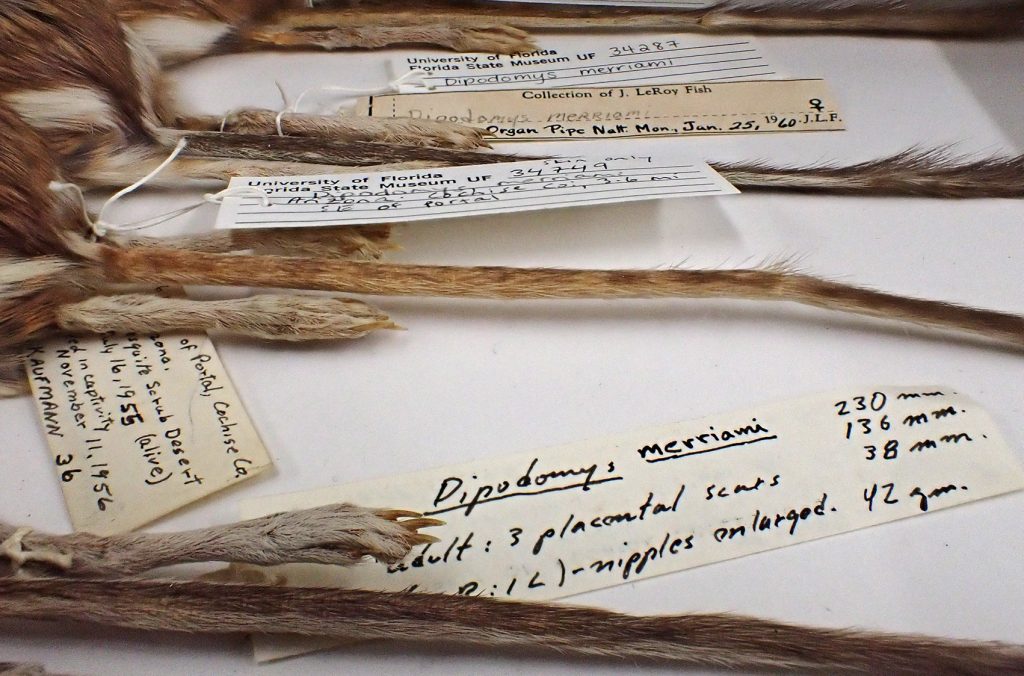 University of Florida
Florida State Museum UF 34287
Dipodomys merriami
Collection of J. LeRoy Fish
Dipodomys merriami ♀
Organ Pipe Natl. Mon., Jan. 25, 1960. J.L.F.
skin only
University of Florida
orida State Museum UF 34749
Dipodomys merriami
Arizona: Cochise Co., 3.6 mi
SE of Portal
of Portal, Cochise Co.
ona.
squite Scrub Desert
uly 16, 1955 (alive)
ed in captivity
November 11, 1956
KAUFMANN 36
Dipodomys merriami
230 mm.
136 mm.
38 mm.
adult: 3 placental scars
R:1L)-nipples enlarged. 42 gm.